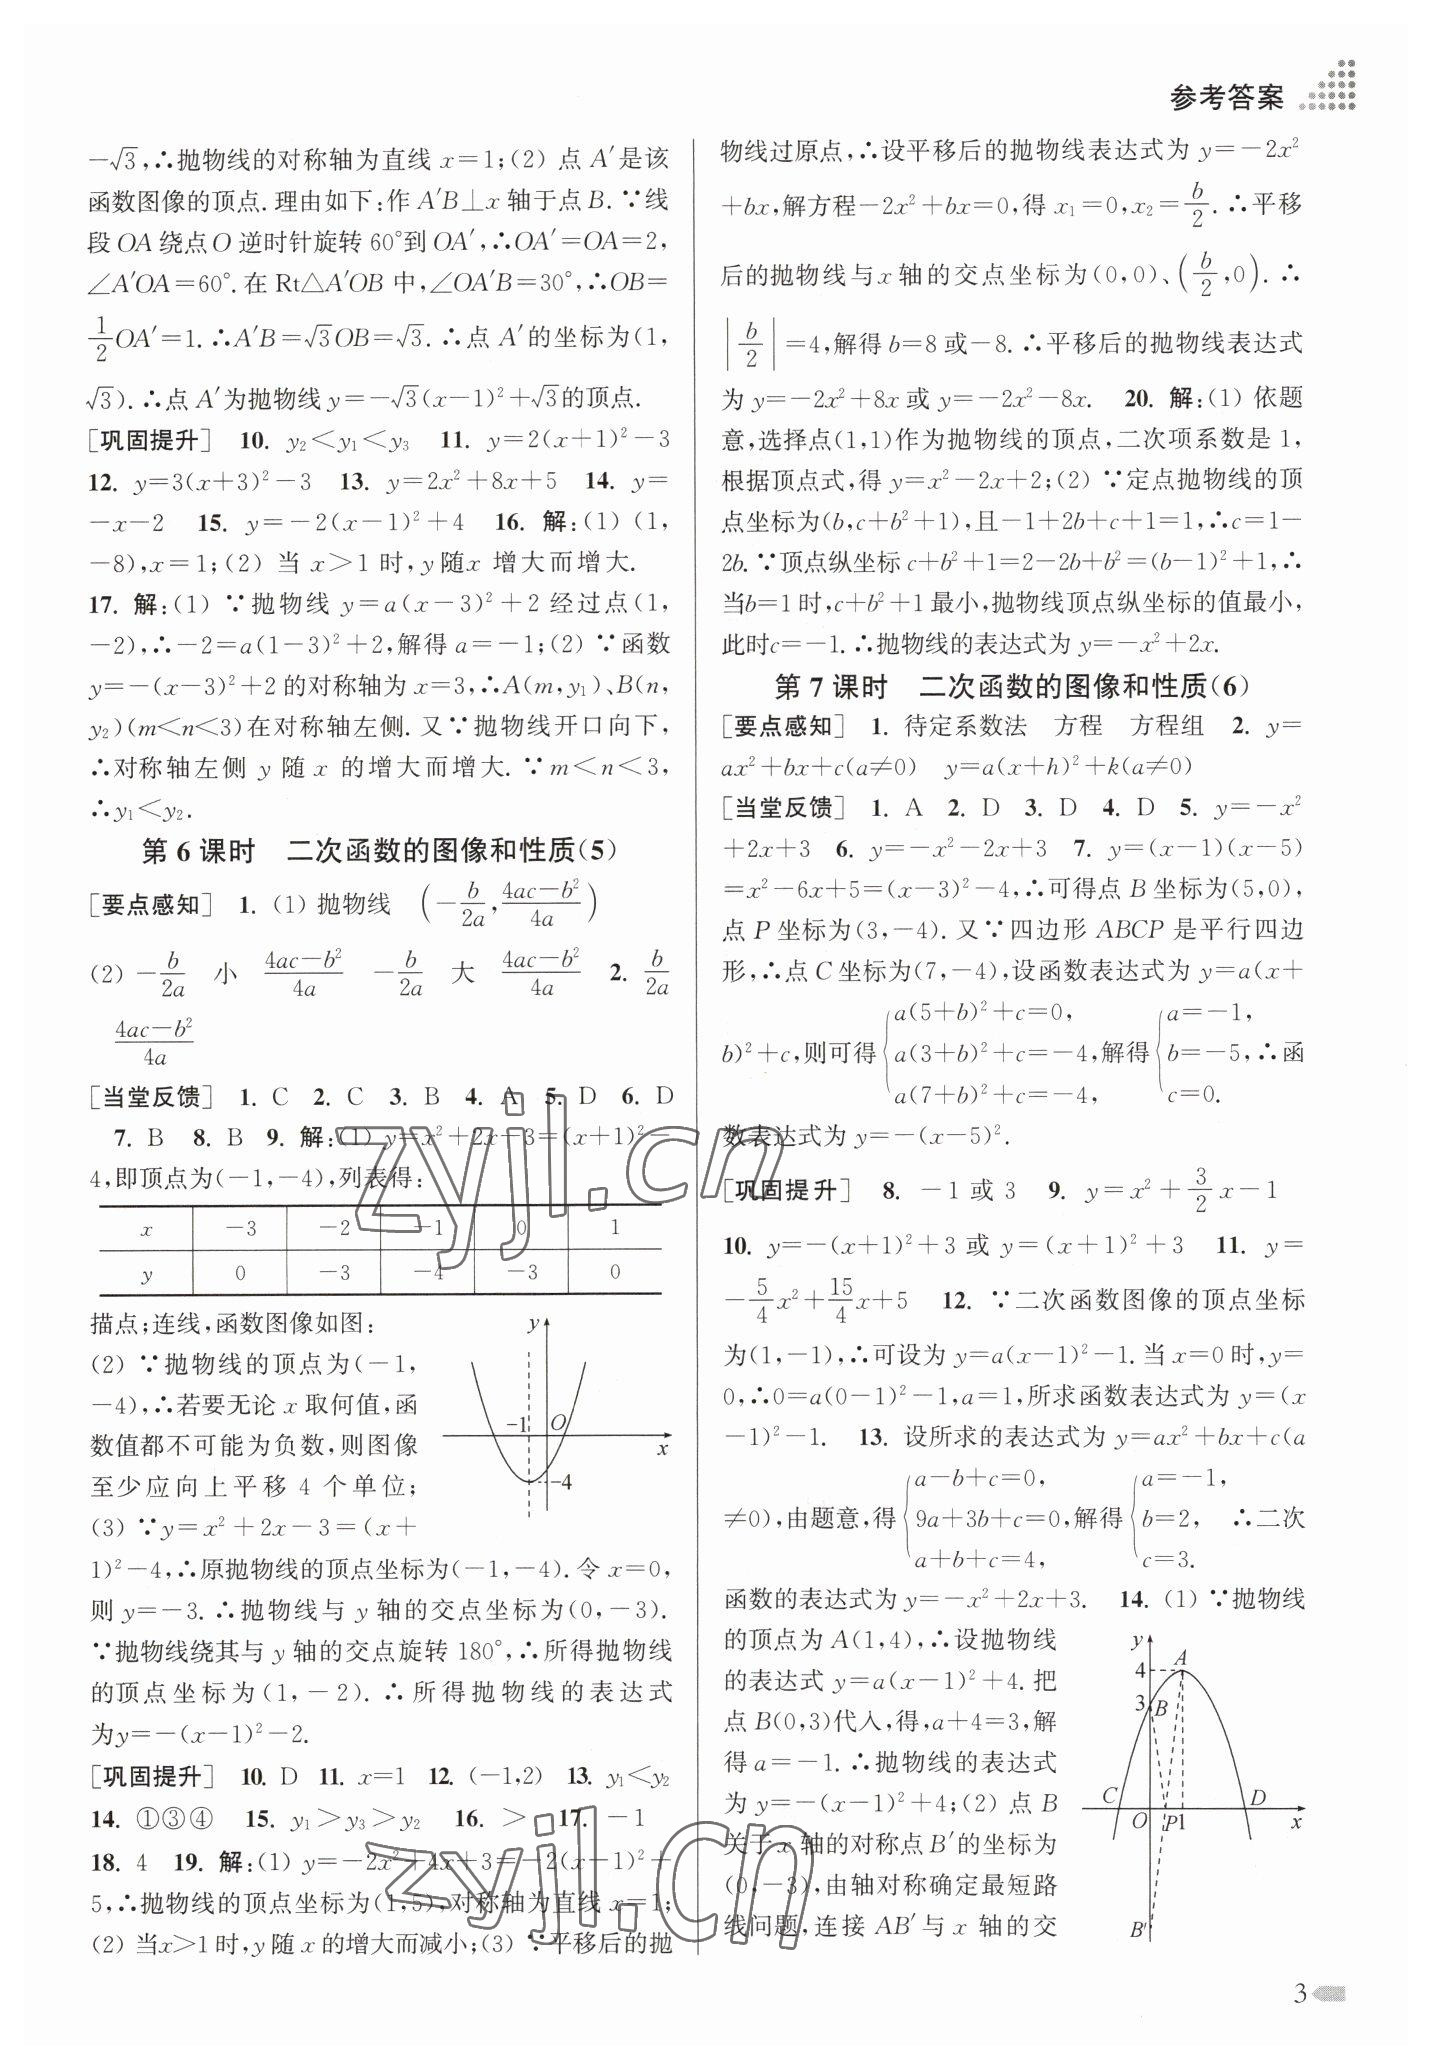 参考答案
-√3,∴抛物线的对称轴为直线 x=1;(2) 点 A′是该
函数图像的顶点.理由如下:作 A′B⊥x 轴于点 B. ∵线
段 OA 绕点 O 逆时针旋转 60°到 OA′,∴OA′=OA=2,
∠A′OA=60°. 在 Rt△A′OB 中,∠OA′B=30°,∴OB=
1/2 OA′=1. ∴A′B=√3OB=√3. ∴点 A′的坐标为(1,
√3). ∴点 A′为抛物线 y=-√3(x-1)²+√3的顶点.
[巩固提升] 10. y₂<y₁<y₃ 11. y=2(x+1)²-3
12. y=3(x+3)²-3 13. y=2x²+8x+5 14. y=
-x-2 15. y=-2(x-1)²+4 16. 解:(1) (1,
-8),x=1;(2) 当 x>1 时,y随x 增大而增大.
17. 解:(1) ∵抛物线 y=a(x-3)²+2 经过点(1,
-2),∴-2=a(1-3)²+2,解得 a=-1;(2) ∵函数
y=-(x-3)²+2 的对称轴为 x=3,∴A(m,y₁)、B(n,
y₂)(m<n<3)在对称轴左侧. 又∵抛物线开口向下,
∴对称轴左侧 y 随 x 的增大而增大. ∵m<n<3,
∴y₁<y₂.
第 6 课时 二次函数的图像和性质(5)
[要点感知] 1. (1) 抛物线 (-b/2a, (4ac-b²)/4a)
(2) -b/2a 小 (4ac-b²)/4a -b/2a 大 (4ac-b²)/4a 2. b/2a
(4ac-b²)/4a
[当堂反馈] 1. C 2. C 3. B 4. A 5. D 6. D
7. B 8. B 9. 解:(1) y=x²+2x-3=(x+1)²-
4,即顶点为(-1,-4),列表得:
x -3 -2 -1 0 1
y 0 -3 -4 -3 0
描点;连线,函数图像如图:
(2) ∵抛物线的顶点为(-1,
-4),∴若要无论 x 取何值,函
数值都不可能为负数,则图像
至少应向上平移 4 个单位;
(3) ∵y=x²+2x-3=(x+
y
-1 O
x
-4
1)²-4,∴原抛物线的顶点坐标为(-1,-4). 令 x=0,
则 y=-3. ∴抛物线与 y 轴的交点坐标为(0,-3).
∵抛物线绕其与 y 轴的交点旋转 180°,∴所得抛物线
的顶点坐标为(1,-2). ∴所得抛物线的表达式
为y=-(x-1)²-2.
[巩固提升] 10. D 11. x=1 12. (-1,2) 13. y₁<y₂
14. ①③④ 15. y₁>y₃>y₂ 16. > 17. -1
18. 4 19. 解:(1) y=-2x²+4x+3=-2(x-1)²+
5,∴抛物线的顶点坐标为(1,5),对称轴为直线 x=1;
(2) 当x>1 时,y 随 x 的增大而减小;(3) ∵平移后的抛
物线过原点,∴设平移后的抛物线表达式为 y=-2x²
+bx,解方程-2x²+bx=0,得 x₁=0,x₂=b/2. ∴平移
后的抛物线与 x 轴的交点坐标为(0,0)、(b/2,0). ∴
|b/2|=4,解得 b=8 或-8. ∴平移后的抛物线表达式
为 y=-2x²+8x 或 y=-2x²-8x. 20. 解:(1) 依题
意,选择点(1,1)作为抛物线的顶点,二次项系数是 1,
根据顶点式,得 y=x²-2x+2;(2) ∵定点抛物线的顶
点坐标为(b,c+b²+1),且-1+2b+c+1=1,∴c=1-
2b. ∵顶点纵坐标 c+b²+1=2-2b+b²=(b-1)²+1,∴
当b=1 时,c+b²+1 最小,抛物线顶点纵坐标的值最小,
此时c=-1. ∴抛物线的表达式为 y=-x²+2x.
第 7 课时 二次函数的图像和性质(6)
[要点感知] 1. 待定系数法 方程 方程组 2. y=
ax²+bx+c(a≠0) y=a(x+h)²+k(a≠0)
[当堂反馈] 1. A 2. D 3. D 4. D 5. y=-x²
+2x+3 6. y=-x²-2x+3 7. y=(x-1)(x-5)
=x²-6x+5=(x-3)²-4,∴可得点 B 坐标为(5,0),
点 P 坐标为(3,-4). 又∵四边形 ABCP 是平行四边
形,∴点 C 坐标为(7,-4),设函数表达式为 y=a(x+
b)²+c,则可得{a(5+b)²+c=0, a(3+b)²+c=-4, a(7+b)²+c=-4,解得{a=-1, b=-5, c=0. ∴函
数表达式为 y=-(x-5)².
[巩固提升] 8. -1 或 3 9. y=x²+3/2 x-1
10. y=-(x+1)²+3 或 y=(x+1)²+3 11. y=
-5/4 x²+15/4 x+5 12. ∵二次函数图像的顶点坐标
为(1,-1),∴可设为 y=a(x-1)²-1. 当 x=0 时,y=
0,∴0=a(0-1)²-1,a=1,所求函数表达式为 y=(x
-1)²-1. 13. 设所求的表达式为 y=ax²+bx+c(a
≠0),由题意,得{a-b+c=0, 9a+3b+c=0, a+b+c=4,解得{a=-1, b=2, c=3. ∴二次
函数的表达式为 y=-x²+2x+3. 14. (1) ∵抛物线
的顶点为 A(1,4),∴设抛物线
的表达式 y=a(x-1)²+4. 把
点 B(0,3)代入,得,a+4=3,解
得 a=-1. ∴抛物线的表达式
为 y=-(x-1)²+4;(2) 点 B
关于 x 轴的对称点 B′的坐标为
(0,-3),由轴对称确定最短路
线问题,连接 AB′与 x 轴的交
y
A
4
3
B
C
D
O
P
1
x
B′
3
zyjl.cn
zyjl.cn